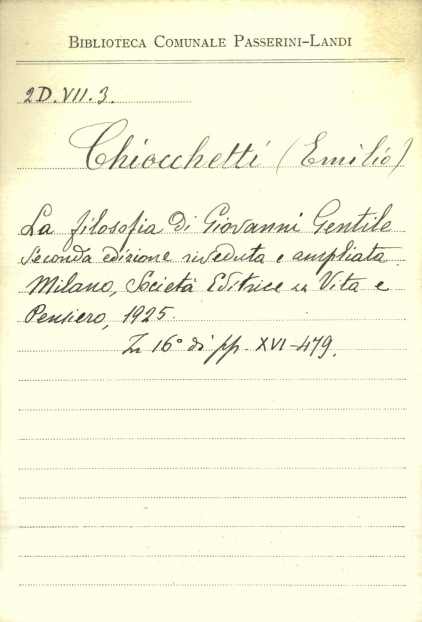 BIBLIOTECA COMUNALE PASSERINI-LANDI
2D.VII.3.
Chiocchetti (Emilio)
La filosofia di Giovanni Gentile
Seconda edizione riveduta e ampliata.
Milano, Società Editrice "Vita e
Pensiero, 1925.
In 16° di pp. XVI-479.